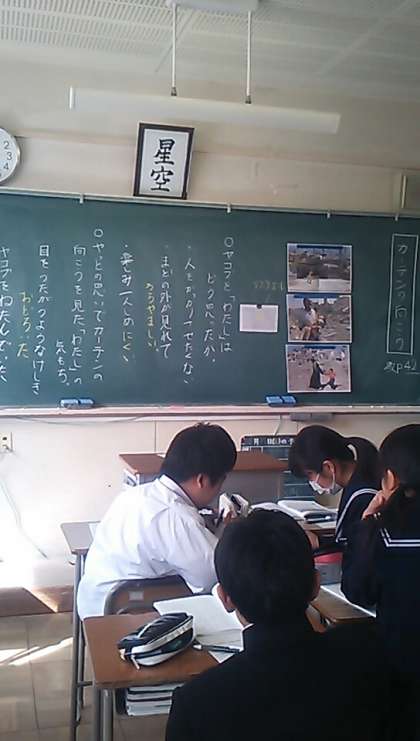 星空
カーテンの向こう
教p42
○ヤコブと「わたし」は
どう思ったか。
・人をがっかりさせたくない
・まどの外が見れて
うらやましい。
・楽しみ一人じめにくい
○やっとの思いでカーテンの
向こうを見た「わたし」の
気もち。
目をうたがうようなけしき
おどろいた
ヤコブをわたんでいた
2
3
4